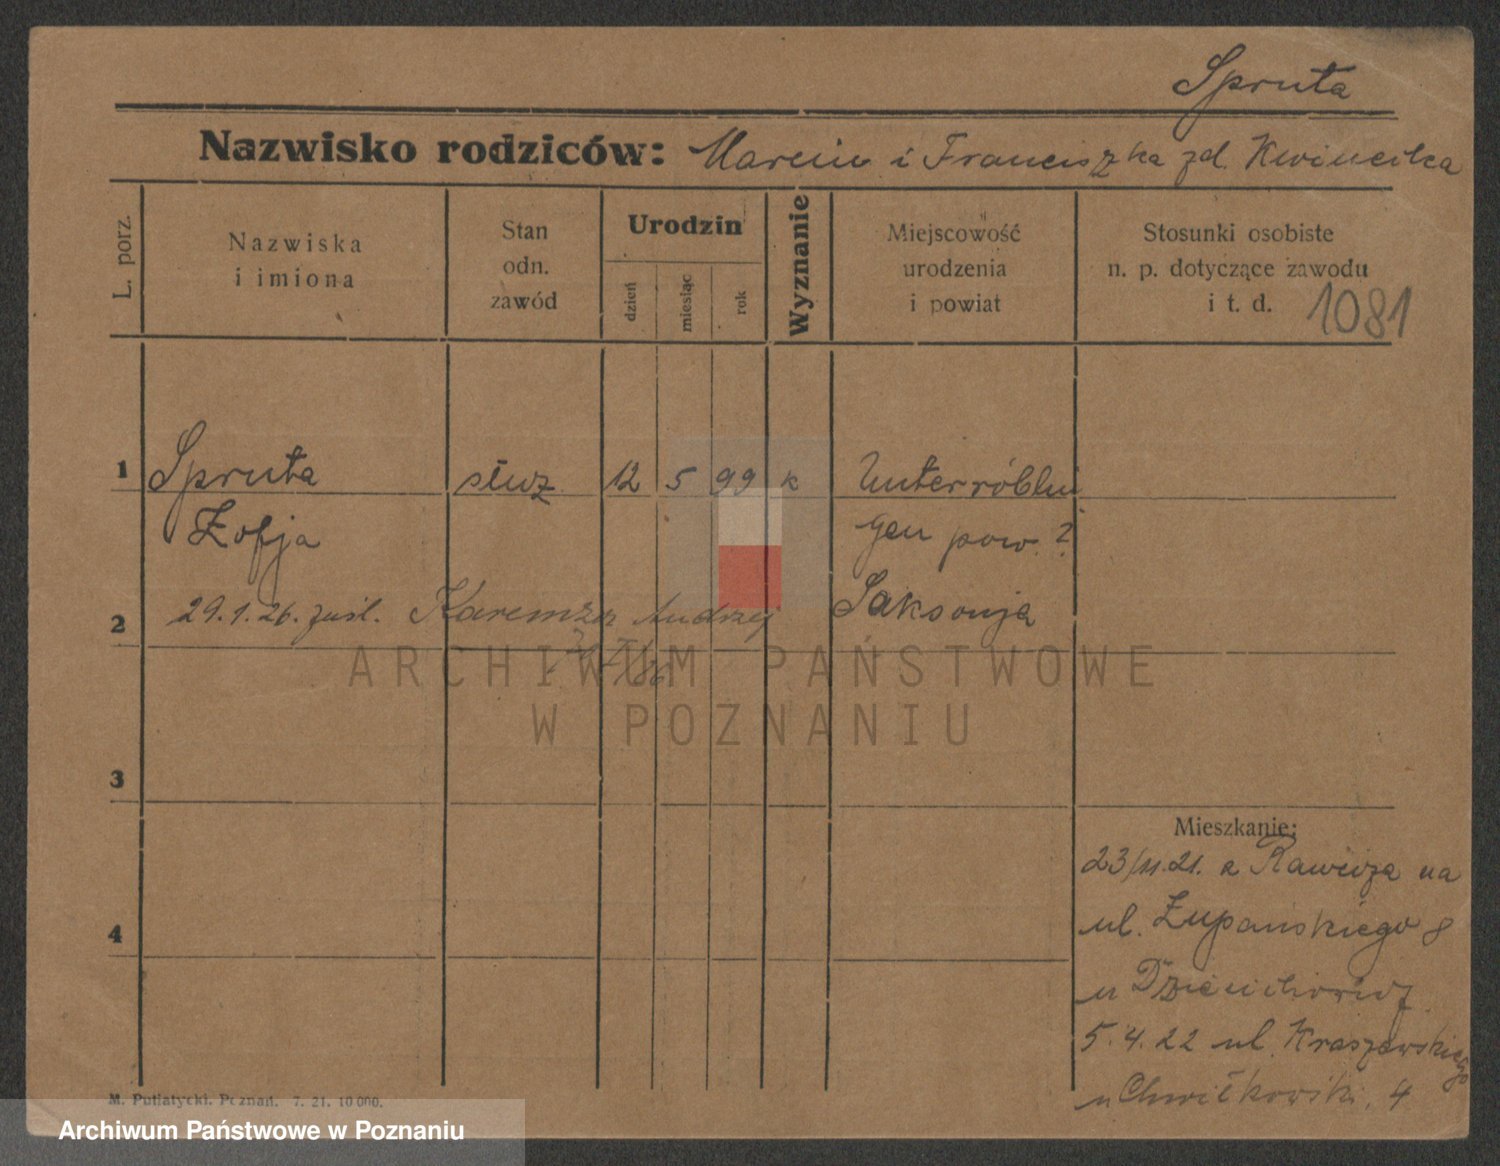 Spruta
Nazwisko rodziców: Marcin i Franciszka zd. Kwinecka
L. porz.
Nazwiska
i imiona
Stan
odn.
zawód
Urodzin
dzień
miesiąc
rok
Wyznanie
Miejscowość
urodzenia
i powiat
Stosunki osobiste
n. p. dotyczące zawodu
i t. d.
1081
1 Spruta służ 12 5 99 k Unterröblin
Zofja gen pow. ?
2 29.1.26. zaśl. Andrzej Saksonja
ARCHIWUM PAŃSTWOWE
W POZNANIU
3
Mieszkanie:
23/11.21. z Rawicza na
4 ul. Żupańskiego 8
u
5.4.22 ul. Kraszewskiego
u Chwiłkowski. 4
M. Putiatycki. Poznań. 7. 21. 10 000.
Archiwum Państwowe w Poznaniu